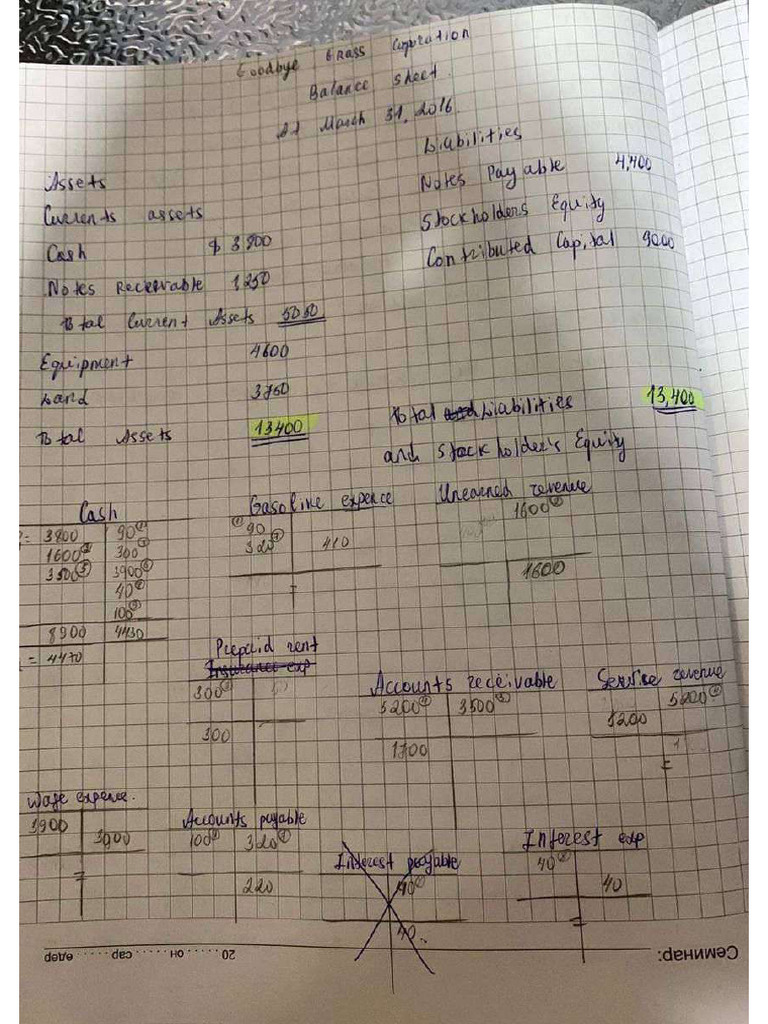 Goodbye Grass Corporation
Balance Sheet
At March 31, 2016
Assets
Currents assets
Cash $ 3800
Notes Receivable 1,250
Total Current Assets 5050
Equipment 4600
Land 3750
Total Assets 13400
Liabilities
Notes Payable 4,400
Stockholders Equity
Contributed Capital 9000
Total and Liabilities 13,400
and Stockholder's Equity
Cash
3800 90①
1600② 300③
3500⑤ 3900⑥
40
100
8900 4430
= 4470
Gasoline expence
① 90
320⑦ 410
=
Unearned revenue
1600②
1600
Prepaid rent
Insurance exp
300③
300
Accounts receivable
5200④ 3500⑤
1700
Service revenue
5200 5200④
=
Wage expence.
3900 3900
=
Accounts payable
100 320⑦
220
Interest payable
40
40.
Interest exp
40 40
=
20...... он ...... сар ...... өдөр
Семинар: